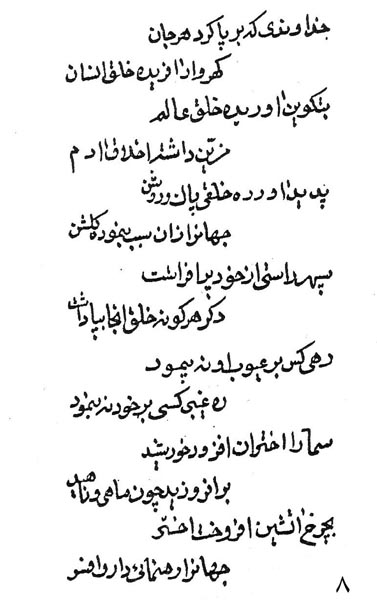 خداوندی که برپا کرد هر جان
کهر وار افریده خلق انسان
بتکوین اوریده خلق عالم
مزیّن داشته اخلاق ادم
پدید اورده خلقی پاک و روشن
جهانرا زان سبب بنموده گلشن
سپهر راستی از خود برافراشت
دکر هر کونه خلق انجا بپا داشت
رهی کس بر عیوب او نه پیمود
ره غیبی کسی بر خود نه پیمود
سما را اختران افزود خورشید
برافروزید چون ماهی و ناهید
بچرخ اتشین افروخت اختر
جهانرا رهنمائی دار و افسر
۸